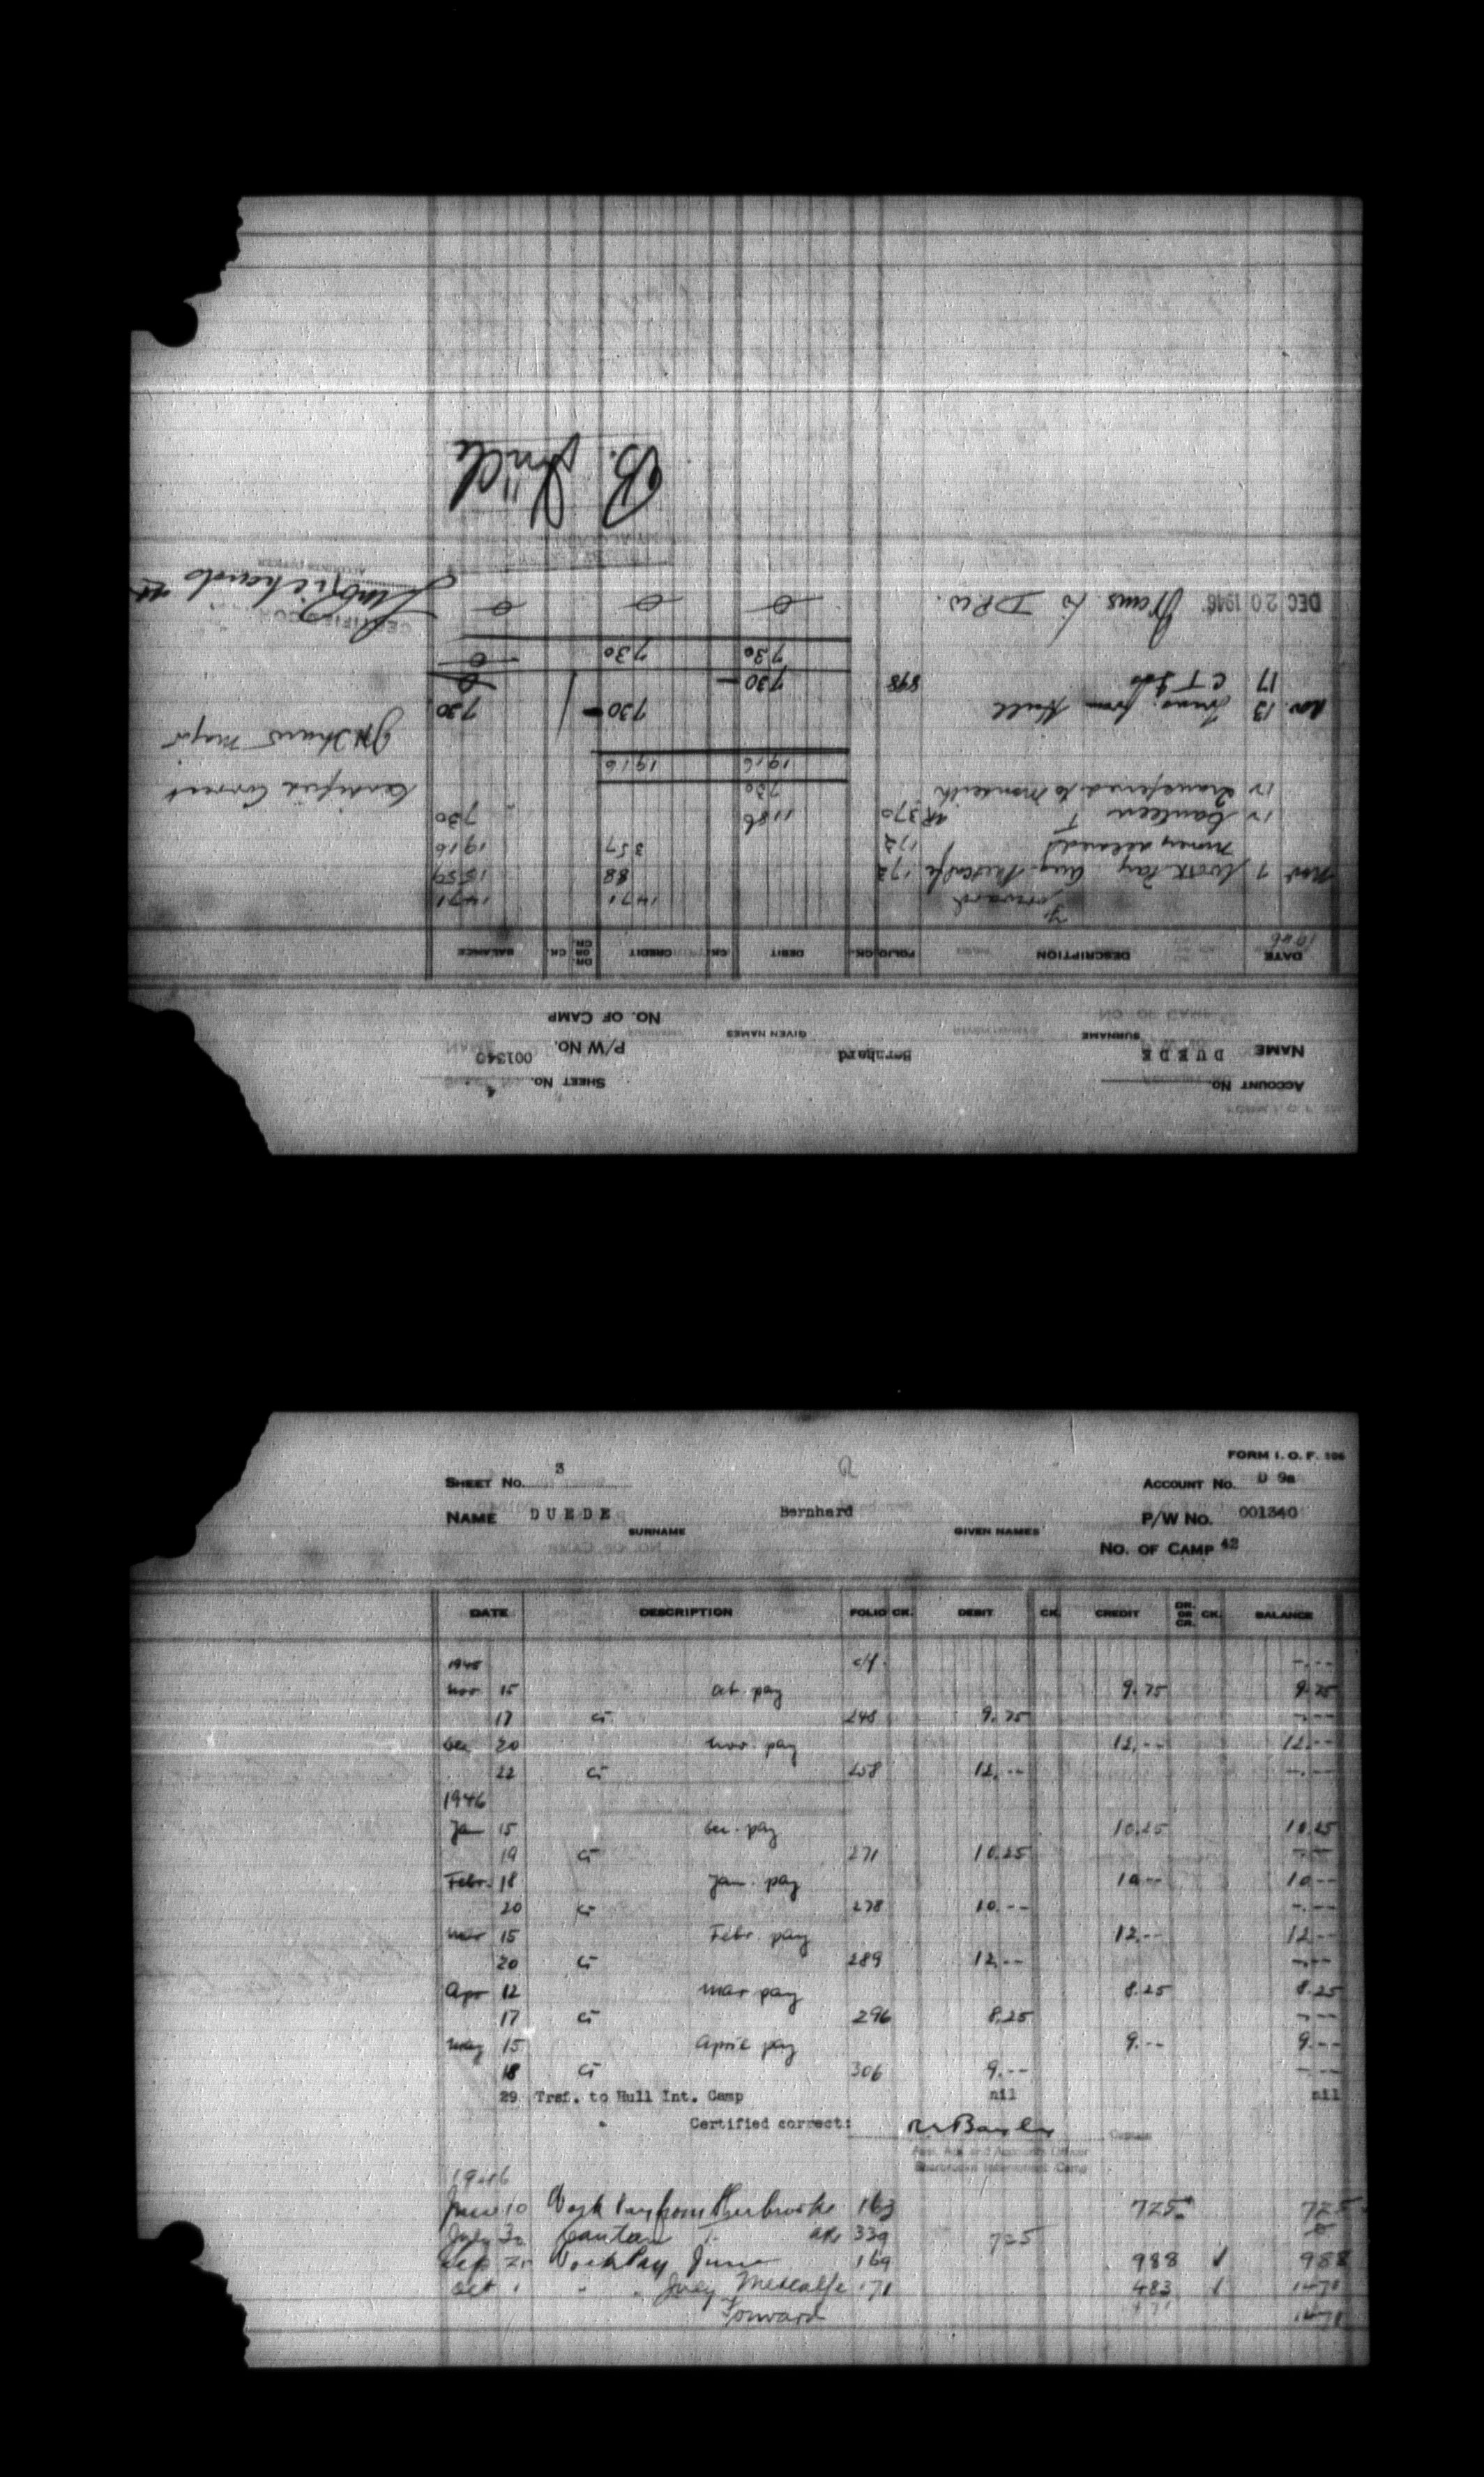 FORM I. O. F. 106
SHEET No. 3 ACCOUNT No. D 9a
NAME DUEDE Bernhard P/W No. 001340
SURNAME GIVEN NAMES
No. OF CAMP 42
DATE DESCRIPTION FOLIO CK. DEBIT CK. CREDIT DR. OR CR. CK. BALANCE
1945 c/f. -.--
Nov 15 Oct. pay 9.75 9.75
17 CT 248 9.75 -.--
Dec 20 Nov. pay 12.-- 12.--
22 CT 258 12.-- -.--
1946
Jan 15 Dec. pay 10.25 10.25
19 CT 271 10.25 -.--
Febr. 18 Jan. pay 10-- 10--
20 CT 278 10.-- -.--
Mar 15 Febr. pay 12.-- 12--
20 CT 289 12.-- -.--
Apr 12 Mar pay 8.25 8.25
17 CT 296 8.25 ---
May 15 April pay 9.-- 9.--
18 CT 306 9.-- ---
29 Trsf. to Hull Int. Camp nil nil
Certified correct:
1946
June 10 Work Pay from Sherbrooke 163 725 725
July 30 339 725 0
Sep 25 Work Pay June 169 988 988
Oct 1 " " July Metcalfe 171 483 1471
Forward 1471
ACCOUNT No. SHEET No. 4
NAME DUEDE Bernhard P/W No. 001340
SURNAME GIVEN NAMES NO. OF CAMP
DATE DESCRIPTION FOLIO CK. DEBIT CK. CREDIT DR. OR CR. CK. BALANCE
1946
Forward 1471 1471
Nov 7 Work Pay Aug. Metcalfe 172 88 1559
Money allowed 172 357 1916
12 Canteen T 370 1186 730
12 Transferred to Monteith 730
1916 1916
Certified Correct
Major
Nov. 13 Trans. from Hull 730 730
17 CT 898 730 0
730 730 0
DEC 20 1946 Trans to DPW. 0 0 0
B. Düde